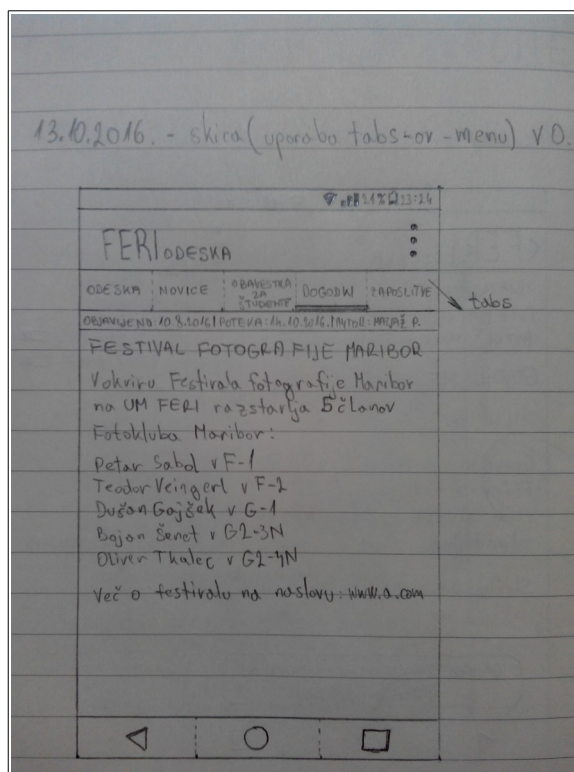 13.10.2016. - skica (uporaba tabs-ov - menu) v0.
21% 13:24
FERI ODESKA
ODESKA NOVICE OBAVESTILA ZA ŠTUDENTE DOGODKI ZAPOSLITVE
tabs
OBJAVLJENO: 10.8.2016 | POTEKA: 14.10.2016. | AVTOR: MATJAŽ P.
FESTIVAL FOTOGRAFIJE MARIBOR
V okviru Festivala fotografije Maribor
na UM FERI razstavlja 5 članov
Fotokluba Maribor:
Petar Sabol v F-1
Teodor Veingerl v F-2
Dušan Gajšek v G-1
Bojan Šenet v G2-3N
Oliver Tkalec v G2-4N
Več o festivalu na naslovu: www.a.com